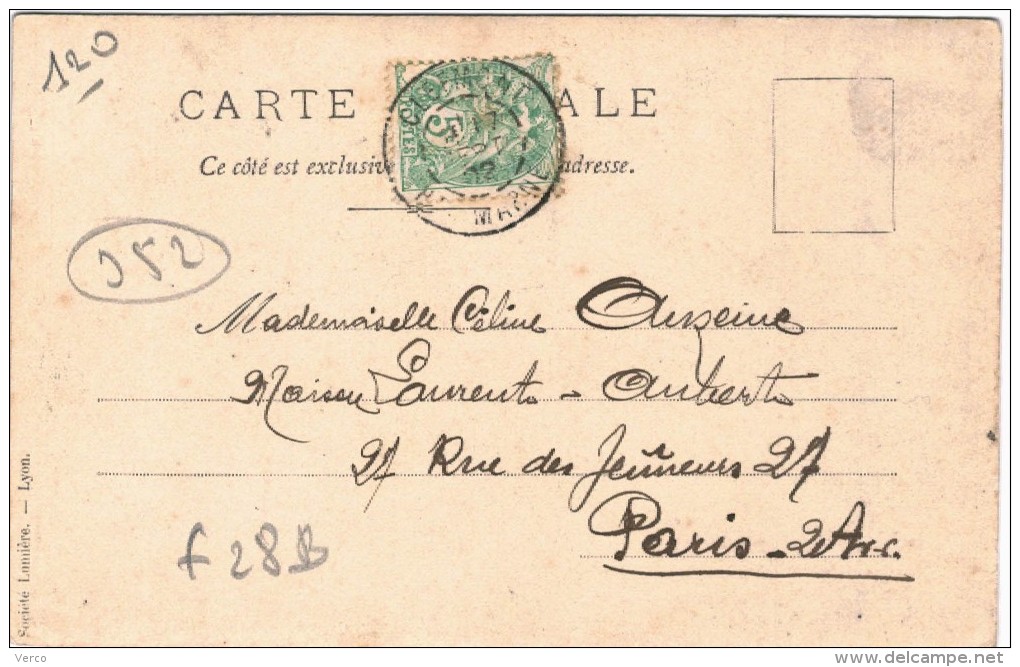 120
CARTE ALE
Ce côté est exclusive adresse.
5
MARNE
J52
Mademoiselle Céline Anzeine
Maison Laurent - Aubert
27 Rue des Jeûneurs 27
Paris - 2e Arr.
f 28 B
Société Lumière. — Lyon.
Verco
www.delcampe.net